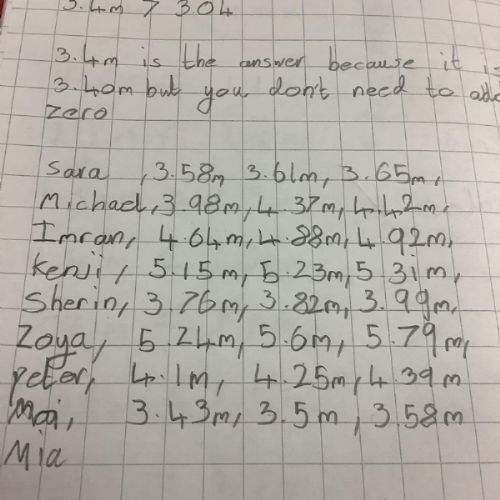 3.4m > 3.04
3.4m is the answer because it is
3.40m but you don't need to add
zero
Sara , 3.58m 3.61m, 3.65m,
Michael, 3.98m, 4.37m, 4.42m,
Imran, 4.64m, 4.88m, 4.92m,
Kenji, 5.15m, 5.23m, 5.31m,
Sherin, 3.76m, 3.82m, 3.99m,
Zoya, 5.24m, 5.6m, 5.79m,
peter, 4.1m, 4.25m, 4.39m
3.43m, 3.5m, 3.58m
Mia